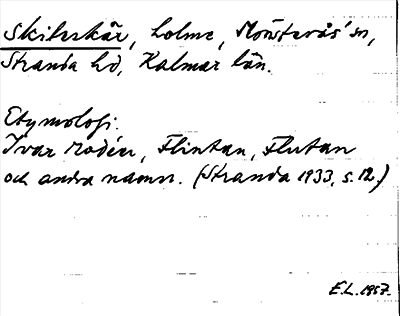 Skiluskär, holme, Mönsterås' sn,
Stranda hd, Kalmar län.
Etymologi.
Ivar Modéer, Flintan, Flutan
och andra namn. (Stranda 1933, s. 12.)
E.L. 1957.